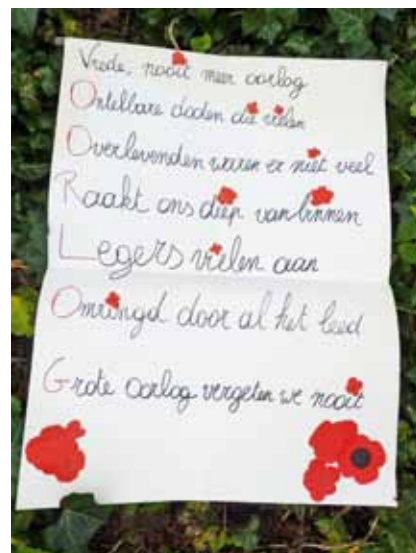 Vrede, nooit meer oorlog
Ontelbare doden die vielen
Overlevenden waren er niet veel
Raakt ons diep van binnen
Legers vielen aan
Omringd door al het leed
Grote oorlog vergeten we nooit